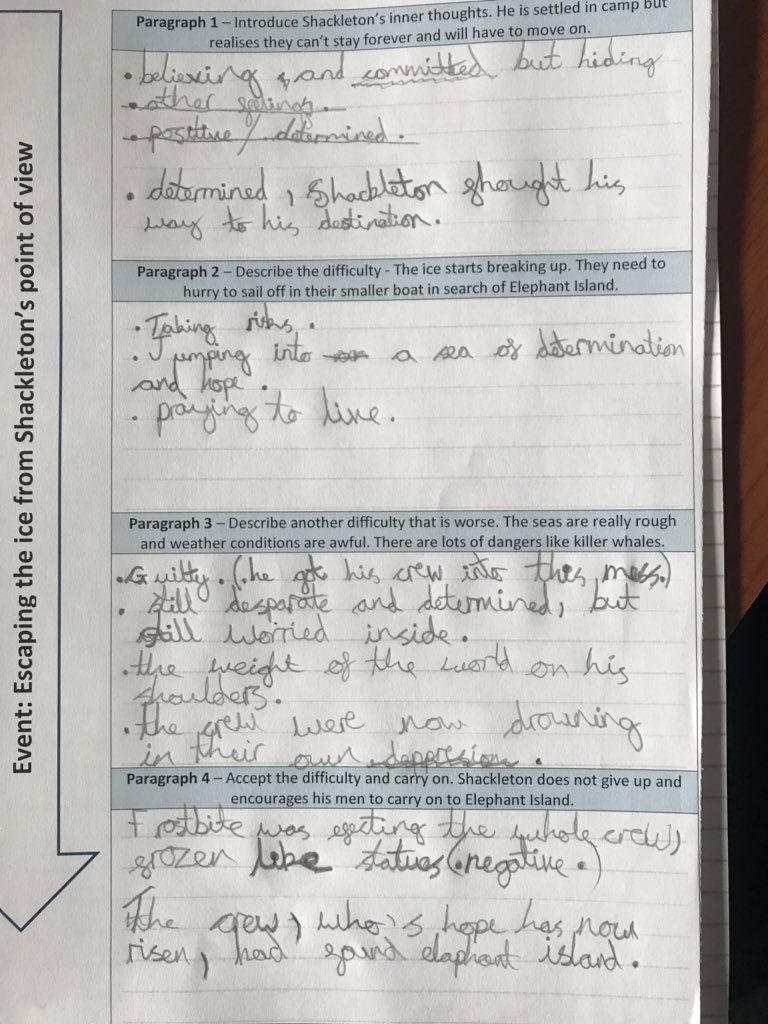 Event: Escaping the ice from Shackleton's point of view
Paragraph 1 – Introduce Shackleton's inner thoughts. He is settled in camp but
realises they can't stay forever and will have to move on.
• believing and committed but hiding
• other feelings.
• positive / determined.
• determined, Shackleton fhought his
way to his destination.
Paragraph 2 – Describe the difficulty - The ice starts breaking up. They need to
hurry to sail off in their smaller boat in search of Elephant Island.
• Taking risks.
• Jumping into a sea of determination
and hope.
• praying to live.
Paragraph 3 – Describe another difficulty that is worse. The seas are really rough
and weather conditions are awful. There are lots of dangers like killer whales.
• Guilty. (he got his crew into this mess.)
• still desparate and determined, but
still worried inside.
• the weight of the world on his
shoulders.
• the crew were now drowning
in their own deppression.
Paragraph 4 – Accept the difficulty and carry on. Shackleton does not give up and
encourages his men to carry on to Elephant Island.
Frostbite was efecting the whole crew,
frozen like statues (negative.)
The crew, who's hope has now
risen, had found elaphant island.